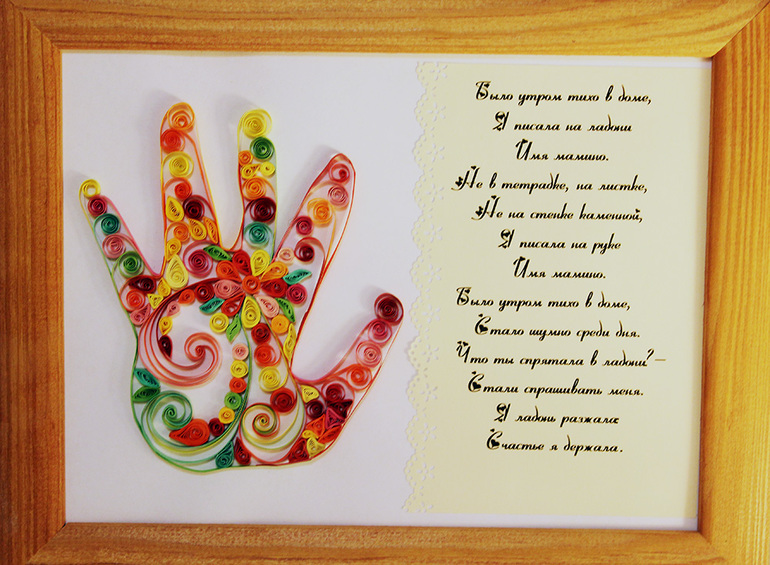 Было утром тихо в доме,
Я писала на ладони
Имя мамино.
Не в тетрадке, на листке,
Не на стенке каменной,
Я писала на руке
Имя мамино.
Было утром тихо в доме,
Стало шумно среди дня.
Что ты спрятала в ладони? –
Стали спрашивать меня.
Я ладонь разжала:
Счастье я держала.